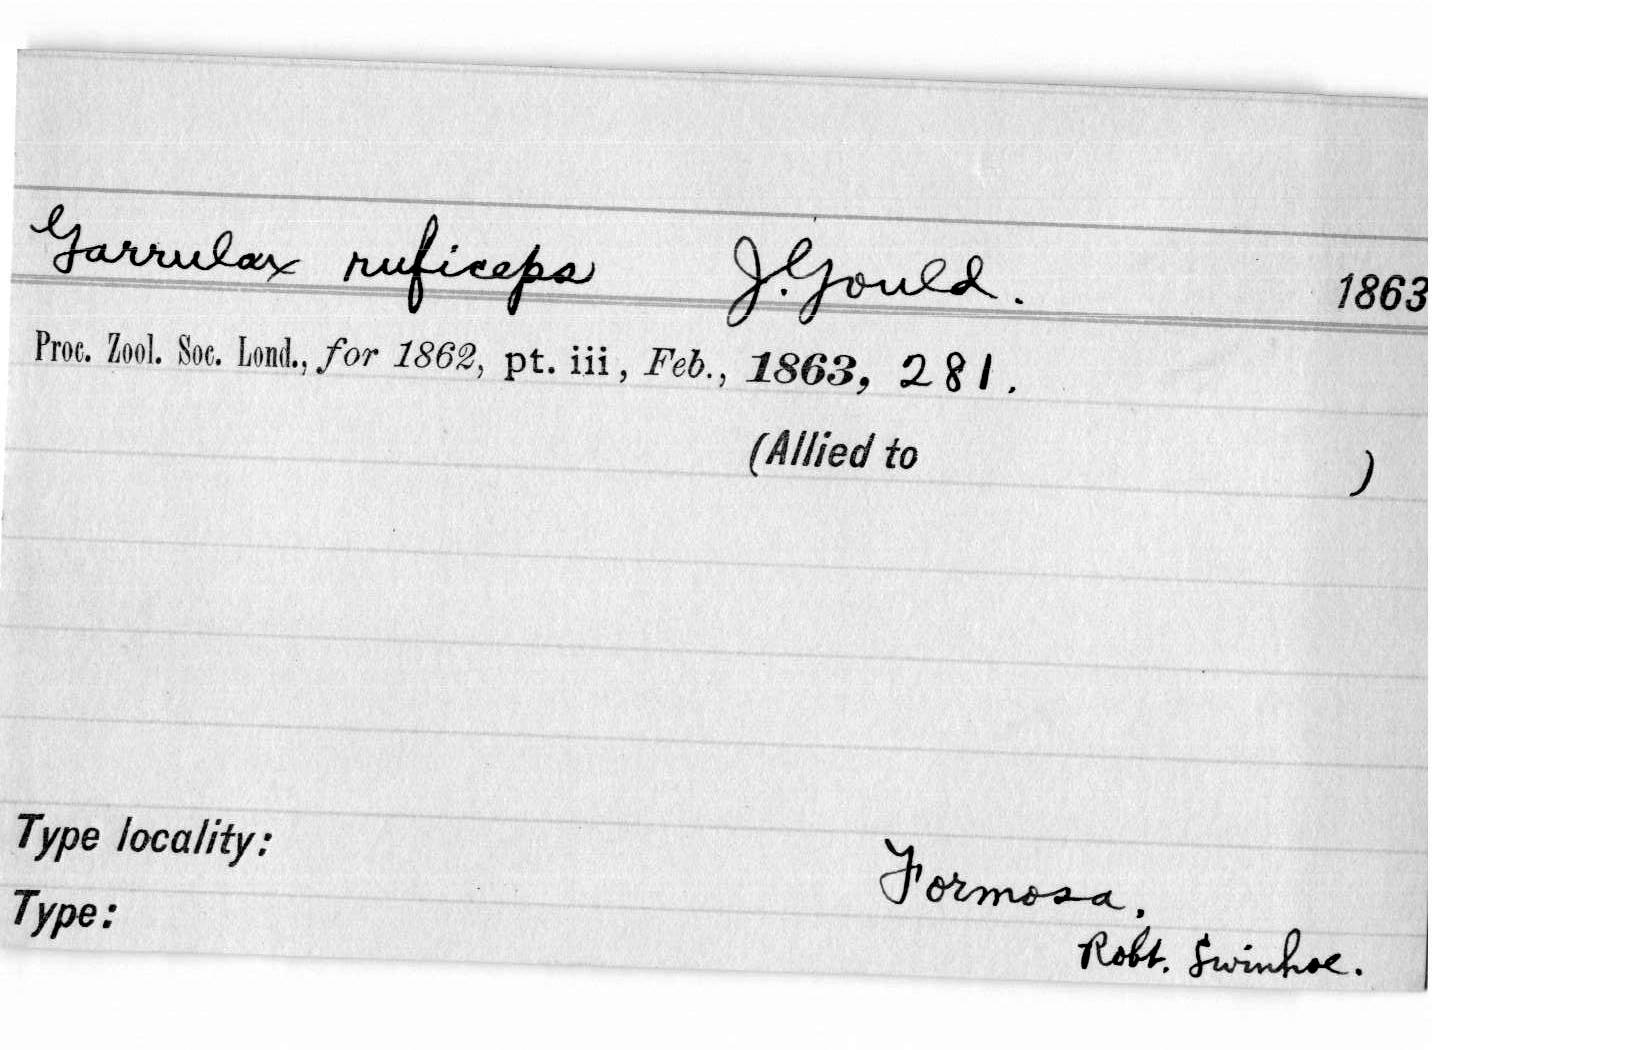 Garrulax ruficeps J. Gould. 1863
Proc. Zool. Soc. Lond., for 1862, pt. iii, Feb., 1863, 281.
(Allied to )
Type locality: Formosa.
Type: Robt. Swinhoe.